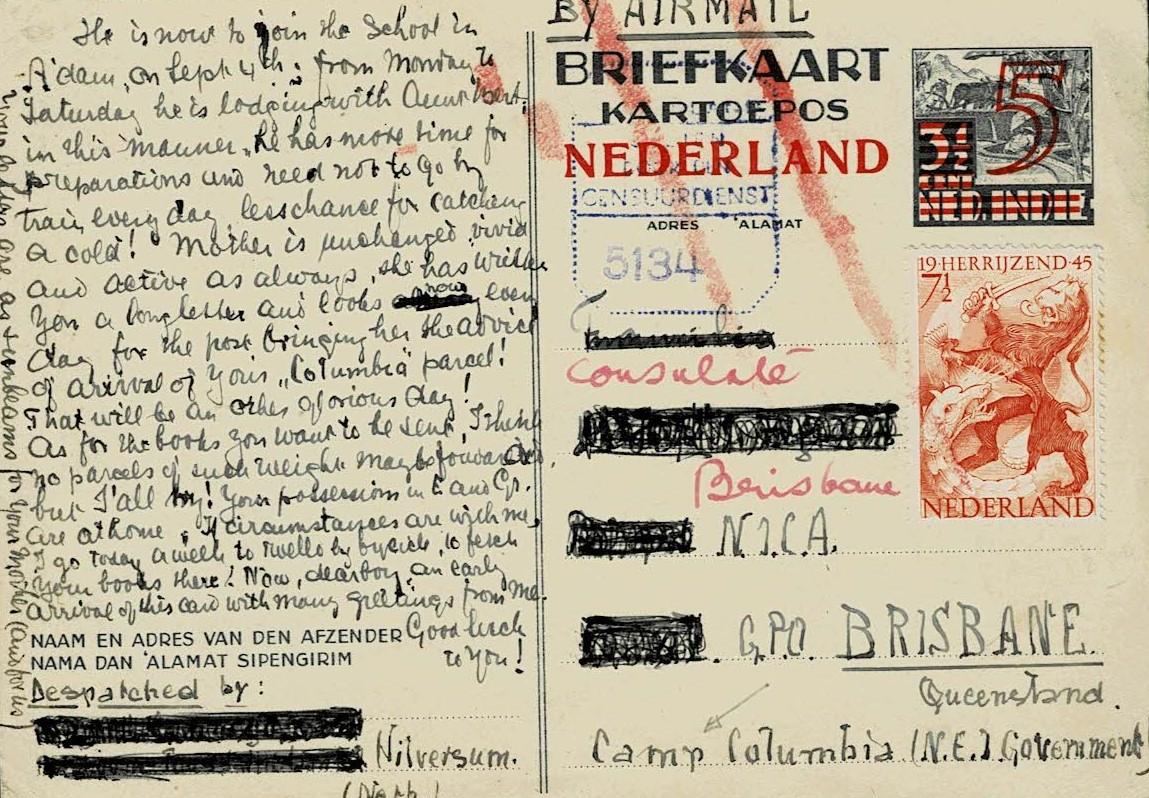 He is now to join the School in
A'dam, on Sept 4th: from Monday to
Saturday he is lodging with Aunt
in this manner he has more time for
preparations and need not to go by
train every day less chance for catching
a cold! Mother is unchanged, vivid
and active as always, she has written
you a long letter and looks now every
day for the post bringing her the advice
of arrival of Yours „Columbia" parcel!
That will be an other glorious day!
As for the books you want to be sent, I think
no parcels of such weight may be forwarded
but I'all try! Your possessions in E and Gr.
are at home. If circumstances are with me,
I go today a week to Twello by bycicle, to fetch
your books there! Now, dear boy, an early
arrival of this card with many greetings from me.
Good luck
to You!
are as sunbeams for your Mother (and for us)
NAAM EN ADRES VAN DEN AFZENDER
NAMA DAN 'ALAMAT SIPENGIRIM
Despatched by:
Hilversum.
BY AIRMAIL
BRIEFKAART
KARTOEPOS
NEDERLAND
CENSUURDIENST
ADRES 'ALAMAT
5134
Consulate
Brisbane
N.I.C.A.
G.P.O. BRISBANE
Queensland.
Camp Columbia (N.E.I. Government
5
3½
CENT
NED. INDIE
19·HERRIJZEND·45
7½
NEDERLAND